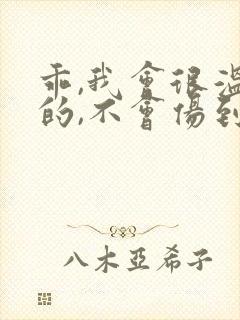 乖,我會很溫
的,不會傷到
八木亞希子